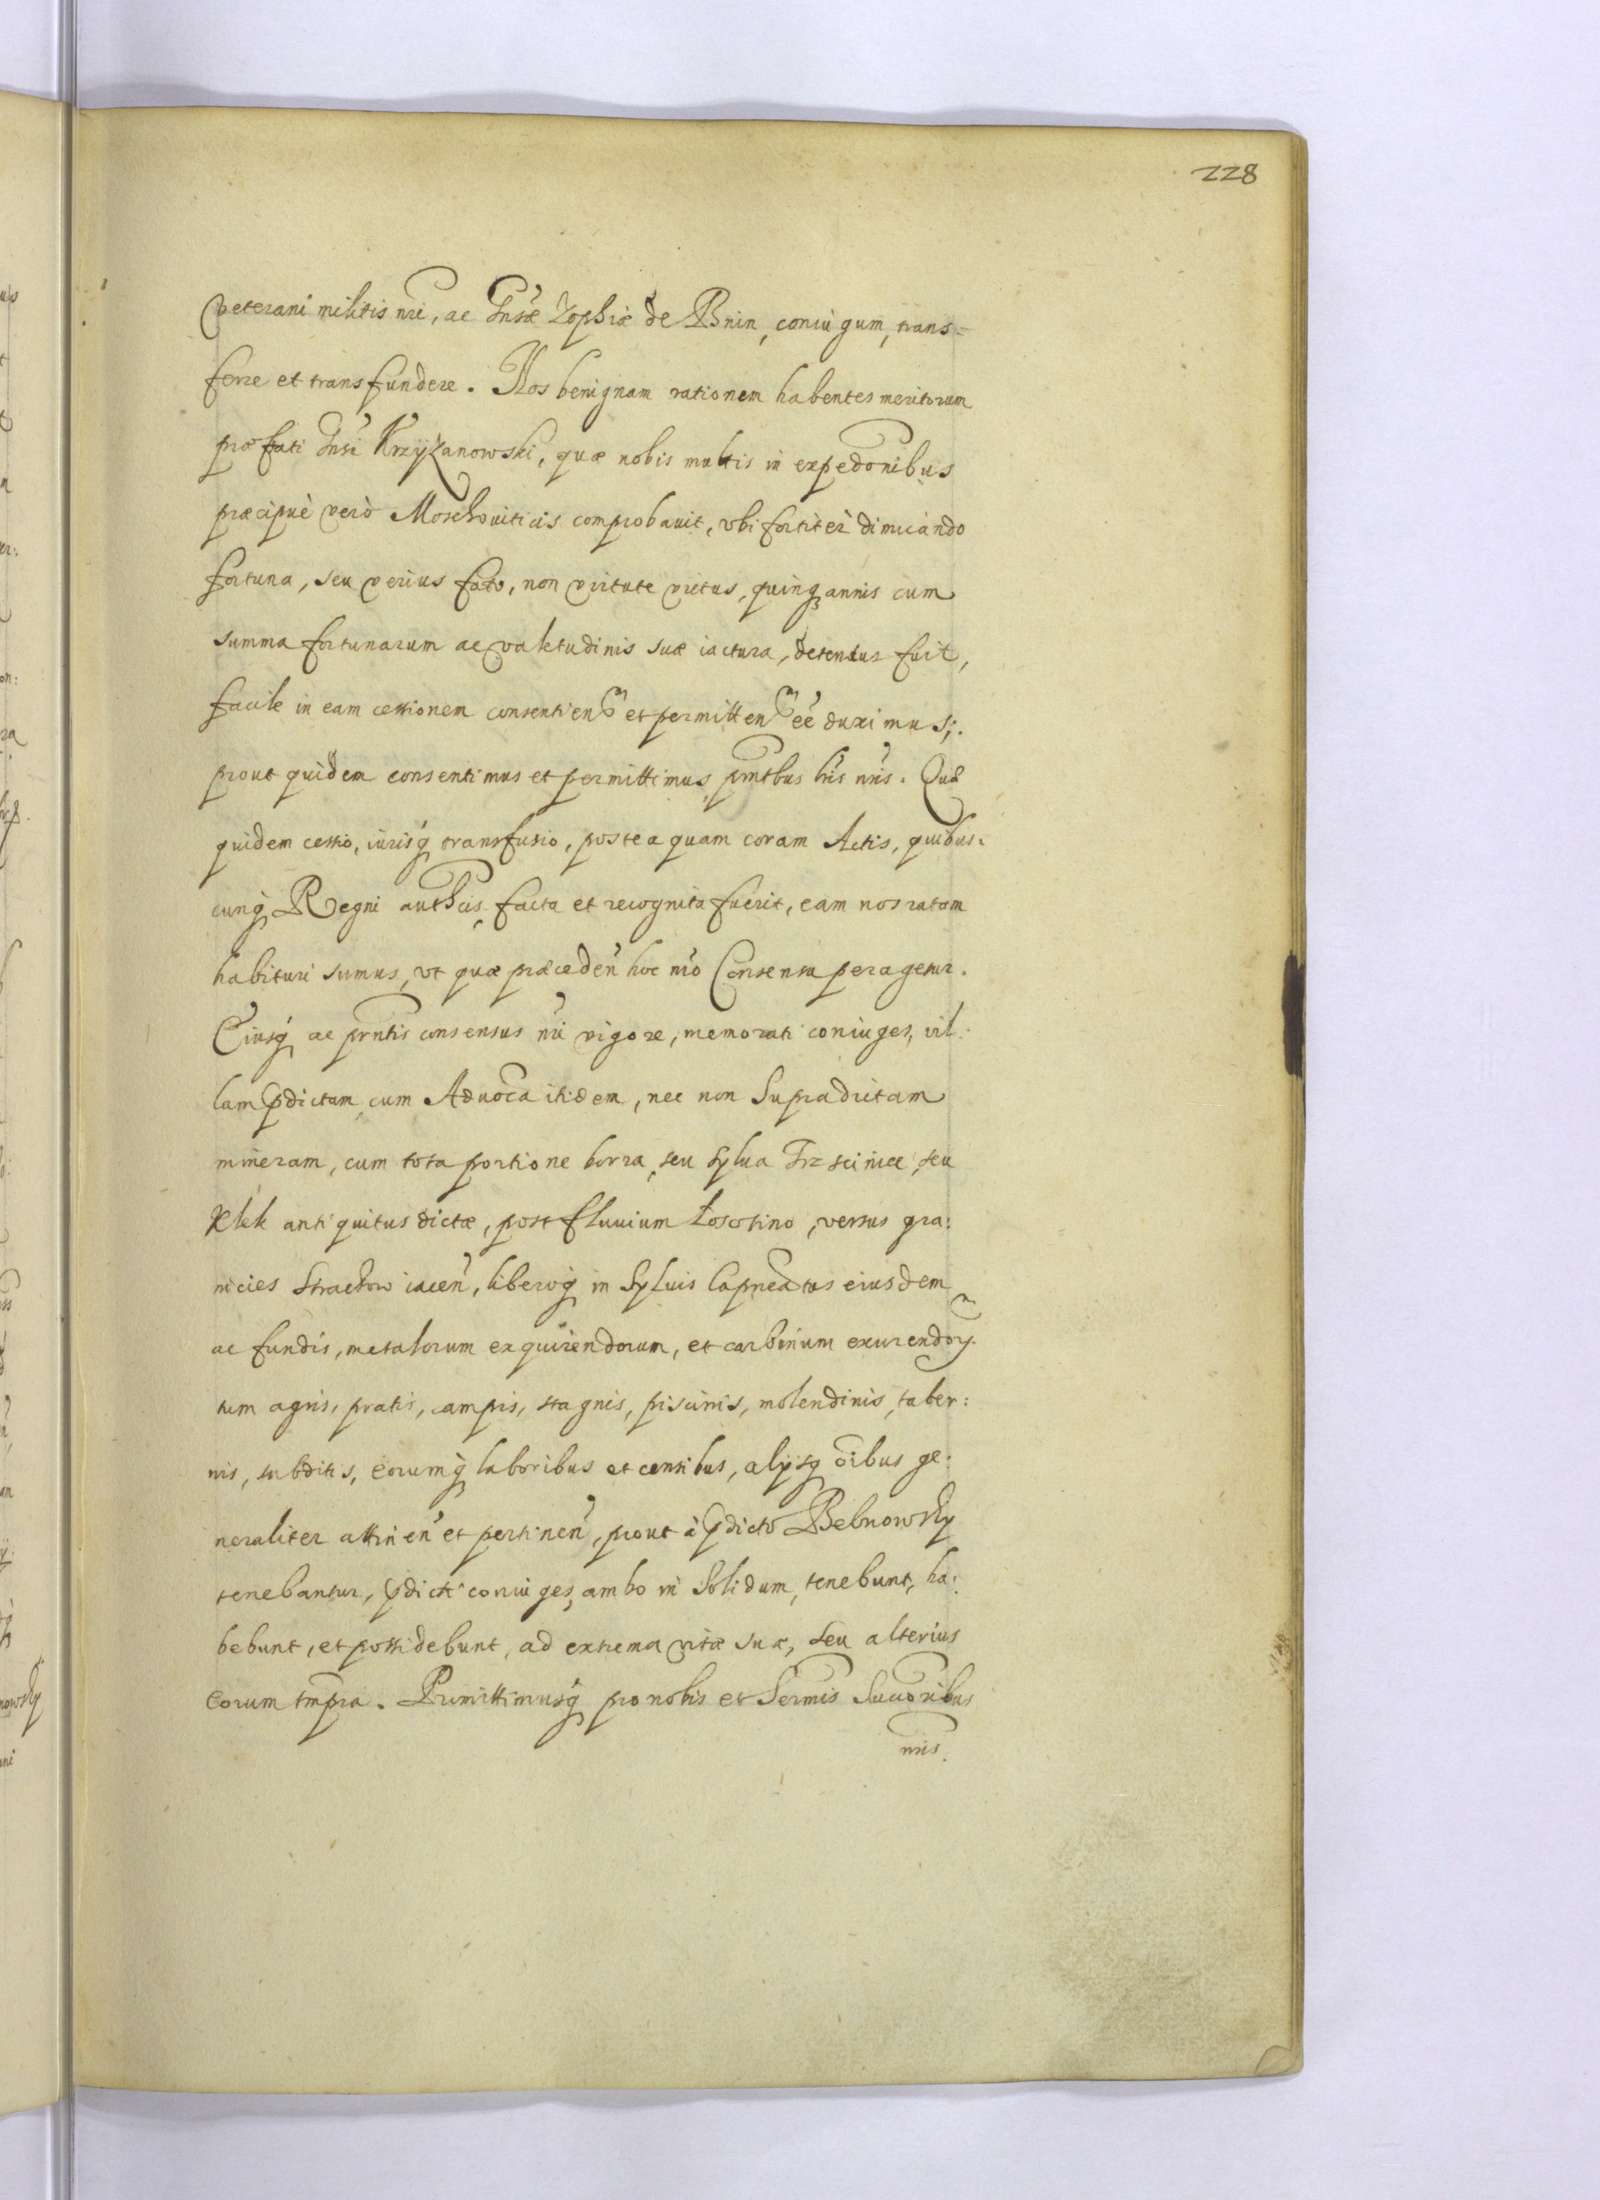 228
veterani militis nri, ac Gnsæ Zophiæ de Bnin, coniugum, trans=
ferre et transfundere. Nos benignam rationem habentes meritorum
præfati Gnsi Krzyżanowski, quæ nobis multis in expedonibus
præcipuè verò Moschouiticis comprobauit, vbi fortiter dimicando
fortuna, seu verius fato, non virtute victus, quinq annis cum
summa fortunarum ac valetudinis suæ iactura, detentus fuit,
facile in eam cessionem consentien et permitten eē duximus;.
prout quidem consentimus et permittimus pntbus lris nris. Quæ
quidem cessio, iurisq transfusio, postea quam coram Actis, quibus:
cunq Regni authcis facta et recognita fuerit, eam nos ratam
habituri sumus, vt quæ præceden hoc nro Consensu peragetur.
Eiusq ac prntis consensus nri vigore, memorati coniuges, vil:
lam pdictam cum Aduoca itidem, nec non Supradictam
mineram, cum tota portione borra, seu sylua Trzscinice, seu
Kłek antiquitus dictæ, post fluuium Łosotino, versus gra:
nicies Strachow iacen, liberoq in Syluis Capneatus eiusdem
ac fundis, metalorum exquirendorum, et carbonum exurendor.
tum agris, pratis, campis, stagnis, piscinis, molendinis, taber:
nis, subditis, eorumq laboribus et censibus, alijsq oibus ge:
neraliter attinen et pertinen, prout à pdicto Bebnowsky
tenebantur, pdicti coniuges, ambo in solidum, tenebunt, ha:
bebunt, et possidebunt, ad extrema vitæ suæ, seu alterius
eorum tmpra. Promittimusq pro nobis et Sermis Succoribus
nris.